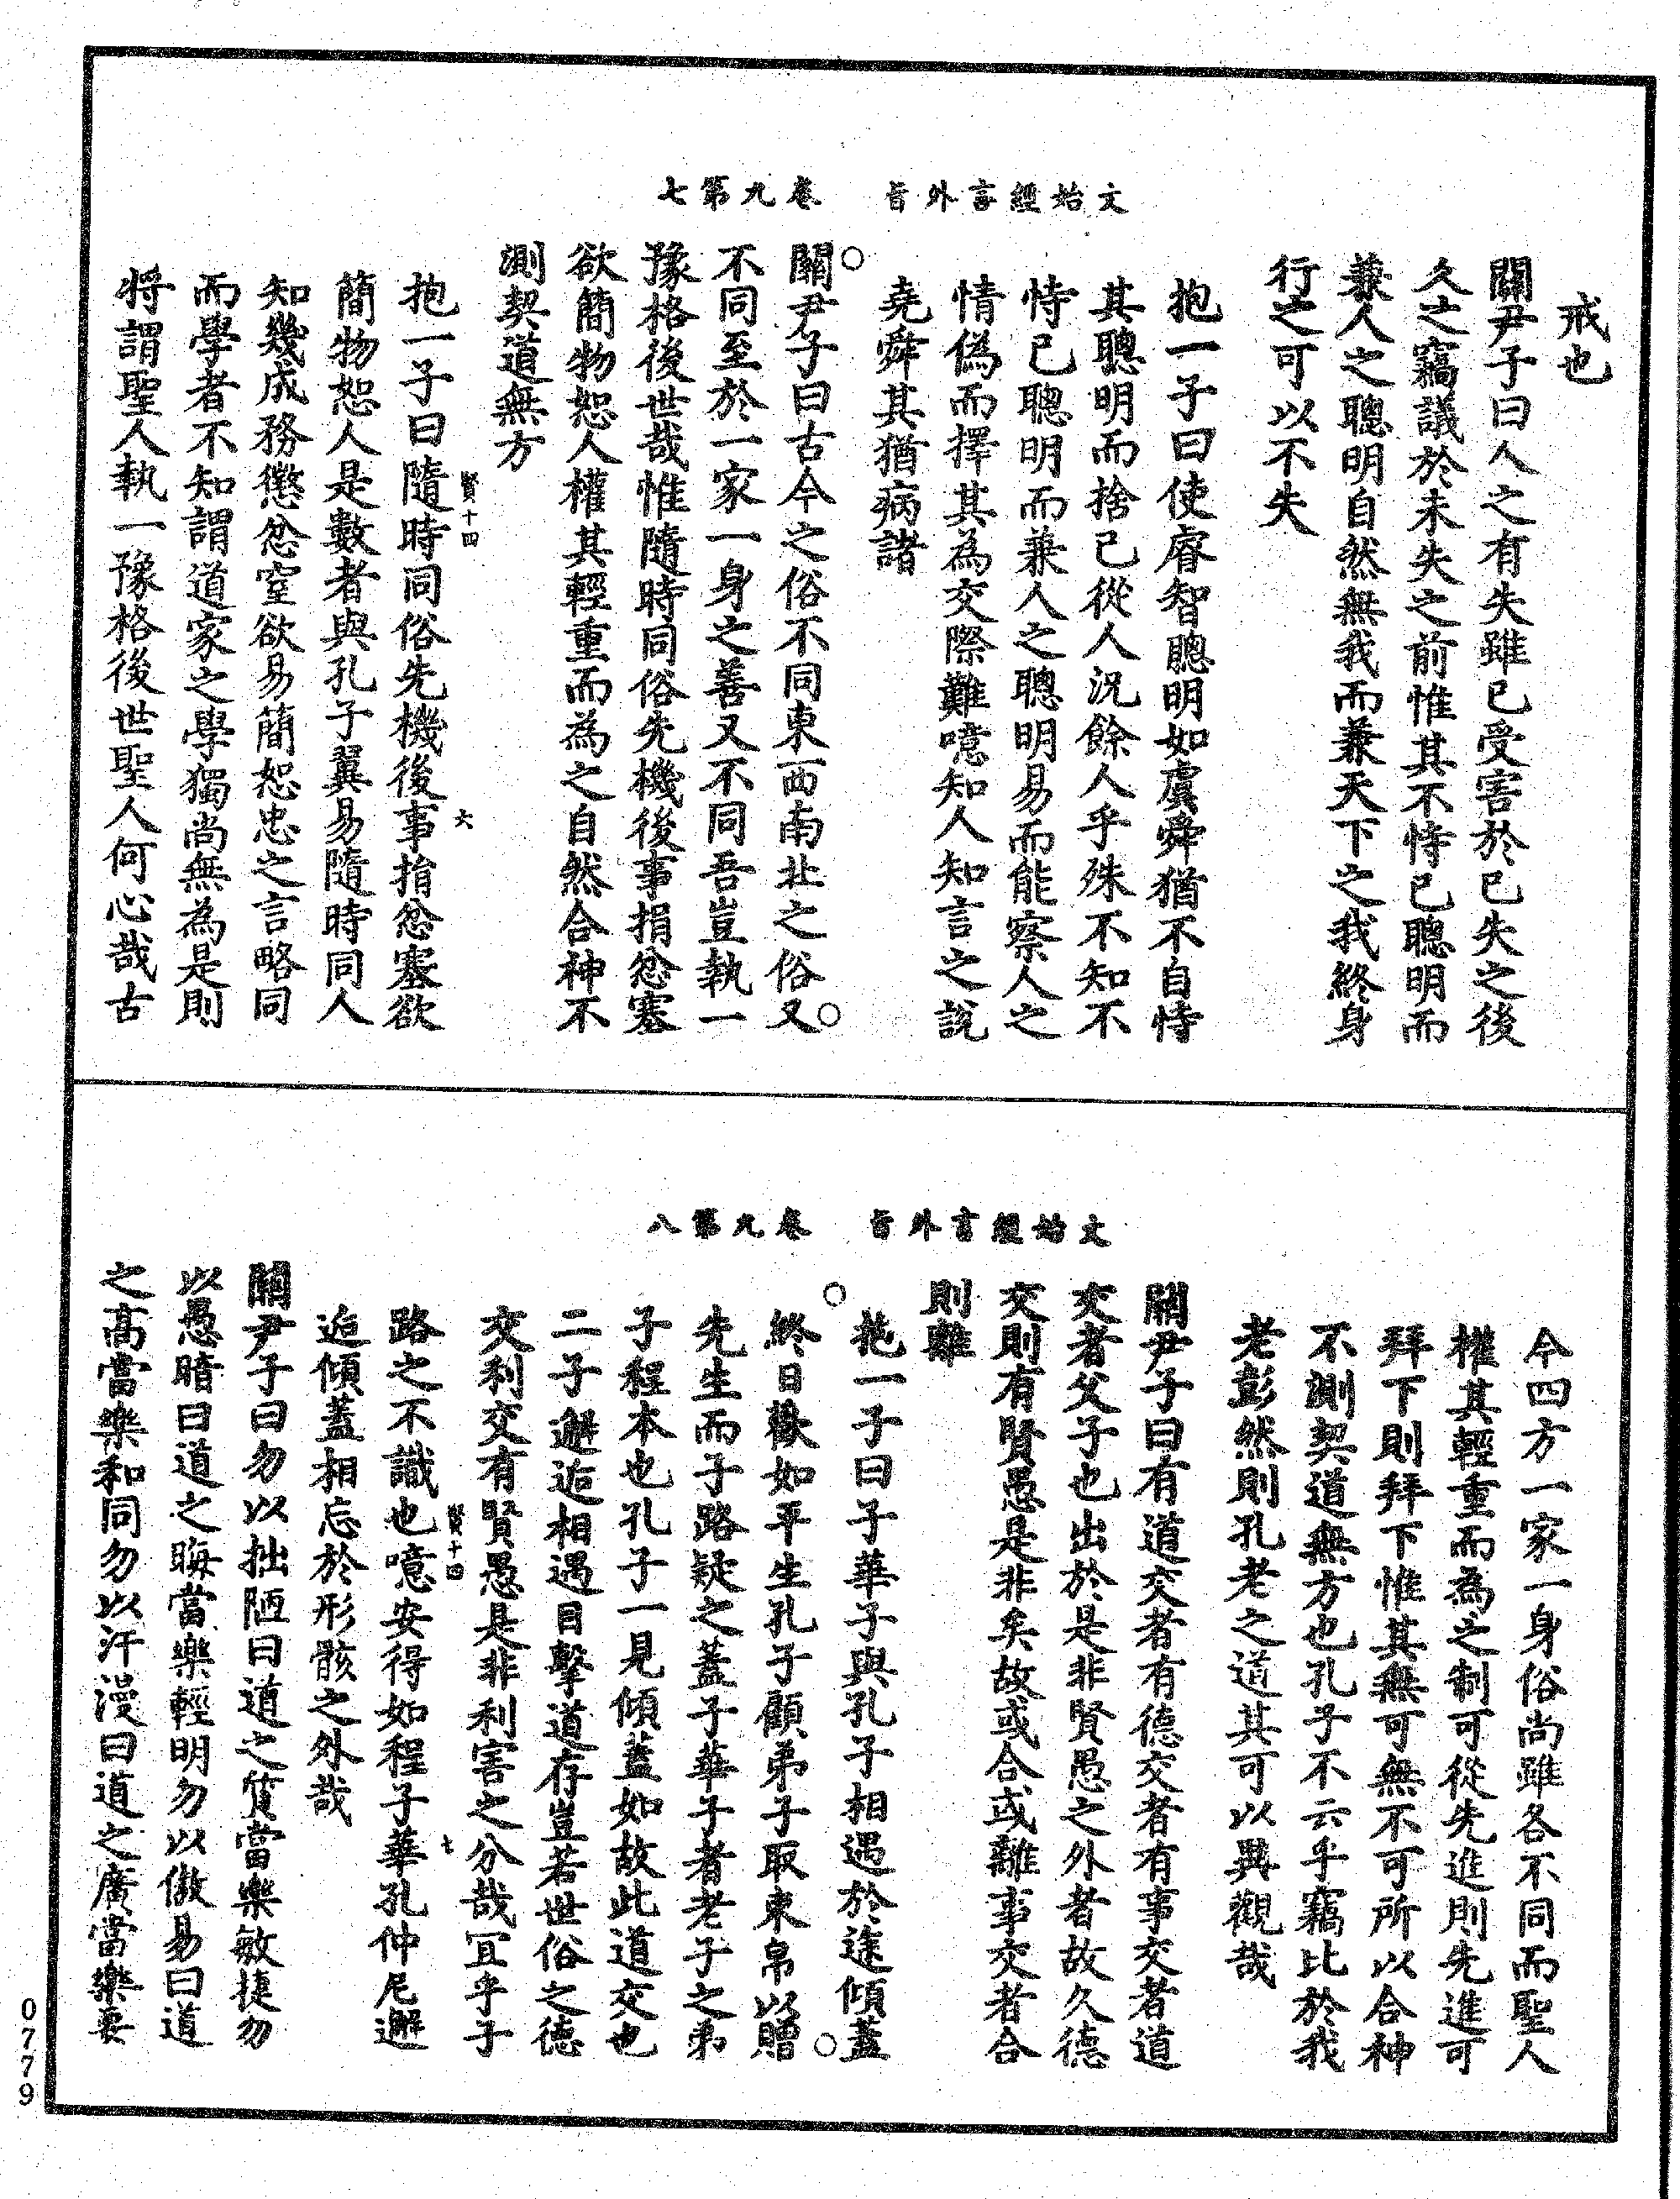 文始經言外旨　卷九第七
戒也
關尹子曰人之有失雖已受害於已失之後
久之竊議於未失之前惟其不恃已聰明而
兼人之聰明自然無我而兼天下之我終身
行之可以不失
抱一子曰使睿智聰明如虞舜猶不自恃
其聰明而捨己從人況餘人乎殊不知不
恃已聰明而兼人之聰明易而能察人之
情偽而擇其為交際難噫知人知言之說
堯舜其猶病諸
關尹子曰古今之俗不同東西南北之俗又
不同至於一家一身之善又不同吾豈執一
豫格後世哉惟隨時同俗先機後事捐忿塞
欲簡物恕人權其輕重而為之自然合神不
測契道無方
賢十四　六
抱一子曰隨時同俗先機後事捐忿塞欲
簡物恕人是數者與孔子翼易隨時同人
知幾成務懲忿窒欲易簡恕忠之言略同
而學者不知謂道家之學獨尚無為是則
將謂聖人執一豫格後世聖人何心哉古
文始經言外旨　卷九第八
今四方一家一身俗尚雖各不同而聖人
權其輕重而為之制可從先進則先進可
拜下則拜下惟其無可無不可所以合神
不測契道無方也孔子不云乎竊比於我
老彭然則孔老之道其可以異觀哉
關尹子曰有道交者有德交者有事交者道
交者父子也出於是非賢愚之外者故久德
交則有賢愚是非矣故或合或離事交者合
則離
抱一子曰子華子與孔子相遇於途傾蓋
終日歡如平生孔子顧弟子取束帛以贈
先生而子路疑之蓋子華子者老子之弟
子程本也孔子一見傾蓋如故此道交也
二子邂逅相遇目擊道存豈若世俗之德
交利交有賢愚是非利害之分哉宜乎子
路之不識也噫安得如程子華孔仲尼邂
逅傾蓋相忘於形骸之外哉
賢十四　七
關尹子曰勿以拙陋曰道之質當樂敏捷勿
以愚暗曰道之晦當樂輕明勿以傲易曰道
之高當樂和同勿以汗漫曰道之廣當樂要
0779